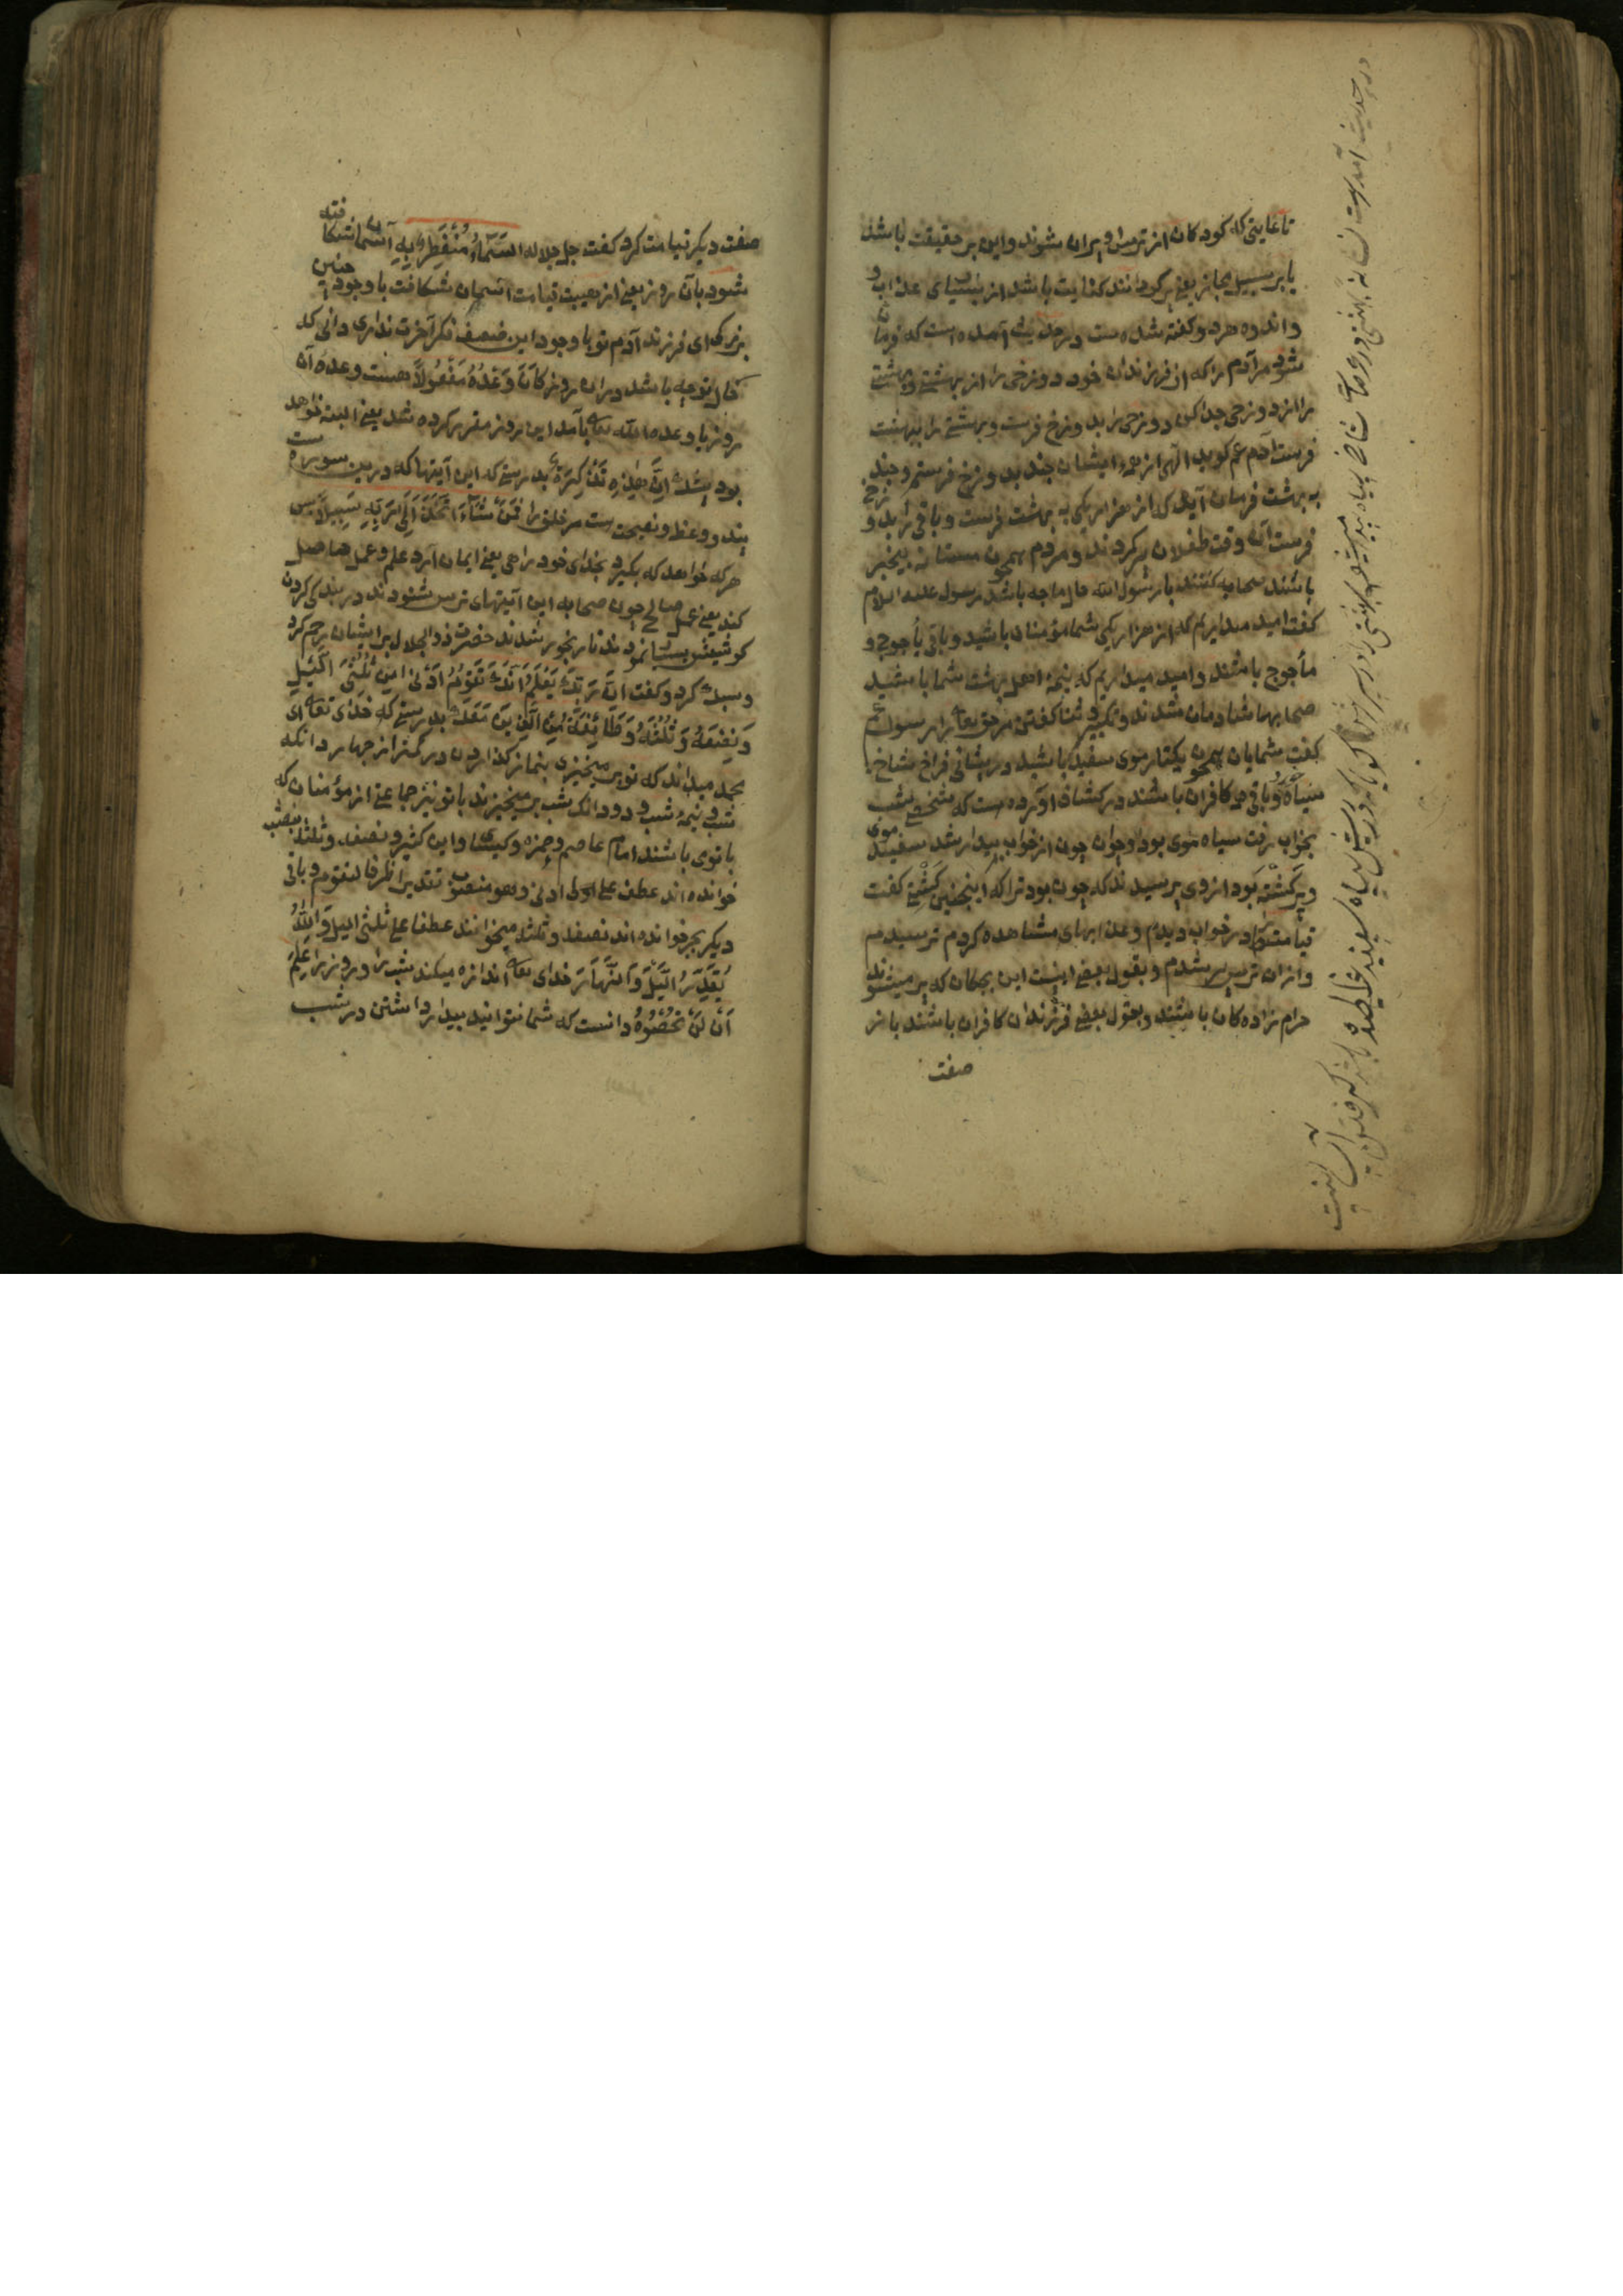 تا غایتی که کودکان از ترس او پیران شوند و این بر حقیقت باشد
یا بر سبیل مجاز یعنی پیر کردانند کنایت باشد از بسیاری عذاب و
و اندوه هر دو کفته شده ست در حدیث آمده است که فرمان
شود مر آدم را که از فرزندان خود دوزخی را از بهشتی و بهشتی
را از دوزخی جدا کن دوزخی را بدوزخ فرست و بهشتی را ببهشت
فرست آدم عم کوید الهی از ایشان چند بدوزخ فرستم و چند
به بهشت فرمان آید که از هزار یکی به بهشت فرست و باقی را بدوزخ
فرست آن وقت طفلان پیر کردند و مردم همچون مستان بیخبر
باشند صحابه کفتند یا رسول الله حال ما چه باشد رسول علیه السلام
کفت امید میداریم که از هزار یکی شما مؤمنان باشید و باقی یأجوج و
مأجوج باشند و امید میداریم که نیمه اهل بهشت شما باشید
صحابها شادمان شدند و تکبیر و ثنا کفتن مر حق تعالی را رسول ع
کفت شمایان همچون یکتار موی سفید باشید در پیشانی فراخ شاخ
سیاه و باقی کافران باشند در کشاف آورده ست که شخصی بشب
بخواب رفت سیاه موی بود و جوان چون از خواب بیدار شد سفید موی
و پیر کشته بود از وی پرسیدند که چون بود ترا که اینچنین کشتی کفت
قیامت را در خواب دیدم و عذابهای مشاهده کردم ترسیدم
و از آن ترس پیر شدم و بقول بعضی اینست این بچکان که پیر میشوند
حرام زاده کان باشند و بقول بعضی فرزندان کافران باشند باز
صفت
در حدیث آمده است
صفت دیکر قیامت کرد کفت جل جلاله السَّمَاءُ مُنْفَطِرٌ بِهِ آسمان شکافته
شود بآن روز یعنی از هیبت قیامت آسمان شکافت با وجود چنین
بزرکی ای فرزند آدم تو با وجود این ضعیف فکر آخرت نداری دانی که
حال تو چه باشد در آن روز كَانَ وَعْدُهُ مَفْعُولًا هست وعدهٔ آن
روز با وعده الله تعالی بآمد این روز مقرر کرده شد یعنی البته خواهد
بود بیشک إِنَّ هَذِهِ تَذْكِرَةٌ بدرستی که این آیتها که درین سوره ست
پند و وعظ و نصیحت ست مر خلق را فَمَنْ شَاءَ اتَّخَذَ إِلَى رَبِّهِ سَبِيلًا پس
هر که خواهد که بکیرد بخدای خود راهی یعنی ایمان آرد علم و عمل حاصل
کند یعنی عمل صالح چون صحابه این آیتهای ترس شنودند در بندکی کردن
کوشیش بسیار نمودند تا رنجور شدند حضرت ذو الجلال بر ایشان رحم کرد
و سبک کرد و کفت إِنَّ رَبَّكَ يَعْلَمُ أَنَّكَ تَقُومُ أَدْنَى مِنْ ثُلُثَيِ اللَّيْلِ
وَنِصْفَهُ وَثُلُثَهُ وَطَائِفَةٌ مِنَ الَّذِينَ مَعَكَ بدرستی که خدای تعالی ای
محمد میداند که تو بر میخیزی بنماز کذاردن در کمتر از چهار دانکه
شب و نیمهٔ شب و دو دانک شب بر میخیزند با تو نیز جماعتی از مؤمنان که
با توی باشند امام عاصم و حمزه و کسائی و ابن کثیر و نصفه و ثلثه بنصب
خوانده اند عطف علی ادنی و هو منصوب تقدیرا ظرفا لتقوم و باقی
دیکر بجر خوانده اند نصفه و ثلثه میخوانند عطفا علی ثلثی اللیل وَاللَّهُ
يُقَدِّرُ اللَّيْلَ وَالنَّهَارَ خدای تعالی اندازه میکند شب را و روز را عَلِمَ
أَنْ لَنْ تُحْصُوهُ دانست که شما نتوانید بیدار داشتن در شب